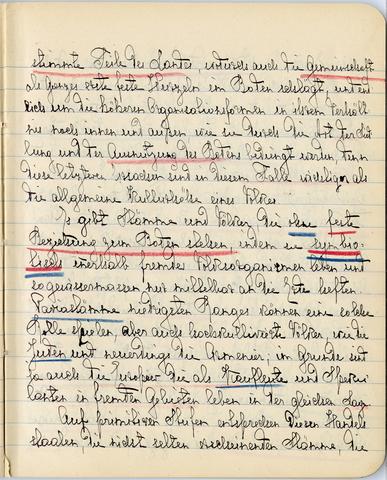 stimmte Teile des Landes, wodurch auch die Gemeinschaft
als Ganzes erste feste Wurzeln im Boden schlägt, und end
lich um die höheren Organisationsformen in ihrem Verhält
nis nach innen und außen wie sie durch die Art der
lung und der Ausnützung des Bodens bedingt werden, denn
diese letzteren Ursachen sind in diesem Falle wichtiger als
die allgemeine Kulturhöhe eines Volkes.
Es gibt Stämme und Völker, die ohne feste
Beziehung zum Boden stehen, indem sie symbio-
tisch innerhalb fremder Volksorganismen leben und
sozusagen nur mittelbar an der Erde haften.
Pariastämme niedrigsten Ranges können eine solche
Rolle spielen, aber auch hochkultivierte Völker, wie die
Juden und neuerdings die Armenier; im Grunde sind
ja auch die Europäer die als Kaufleute und
lanten in fremden Gebieten leben in der gleichen Lage.
Auf primitiven Stufen entsprechen diesen Handels
staaten, die nicht selten Stämme, die